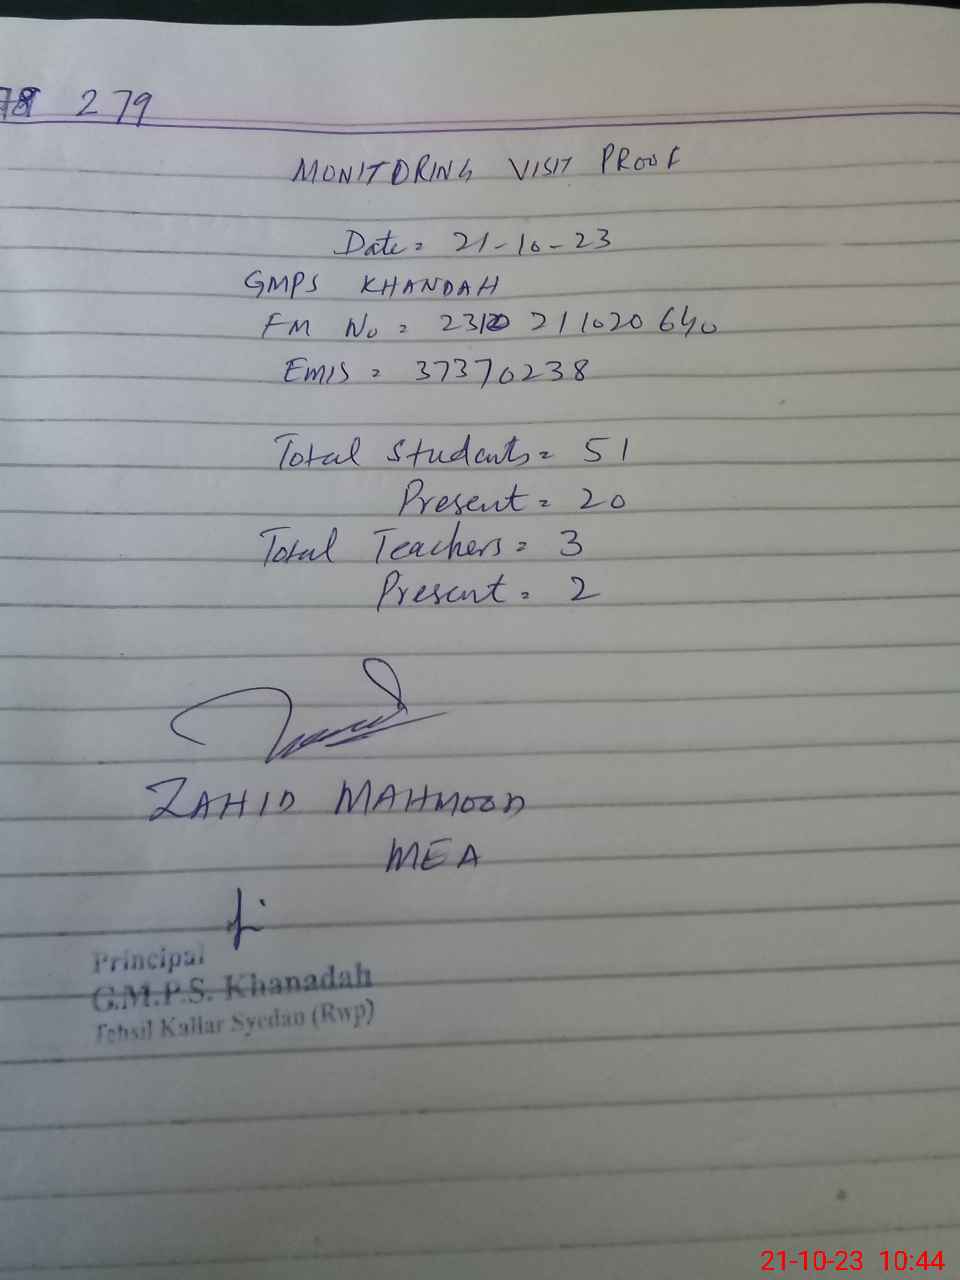 279
MONITORING VISIT PROOF
Date = 21-10-23
GMPS KHANDAH
FM No = 2310211020640
EMIS = 37370238
Total Students = 51
Present = 20
Total Teachers = 3
Present = 2
ZAHID MAHMOOD
MEA
Principal
G.M.P.S. Khanadah
Tehsil Kallar Syedan (Rwp)
21-10-23 10:44